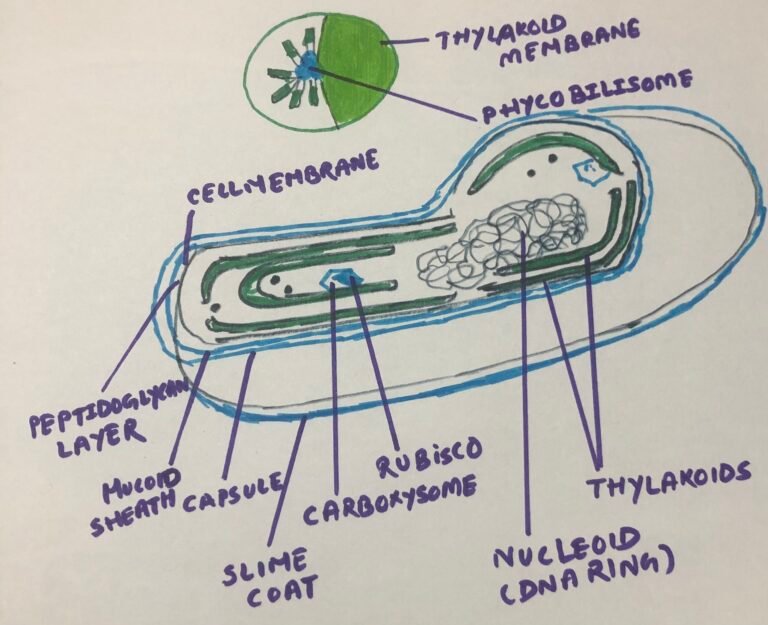 THYLAKOID
MEMBRANE
PHYCOBILISOME
CELLMEMBRANE
PEPTIDOGLYCAN
LAYER
MUCOID
SHEATH
CAPSULE
SLIME
COAT
CARBOXYSOME
RUBiSCO
NUCLEOID
(DNA RING)
THYLAKOIDS